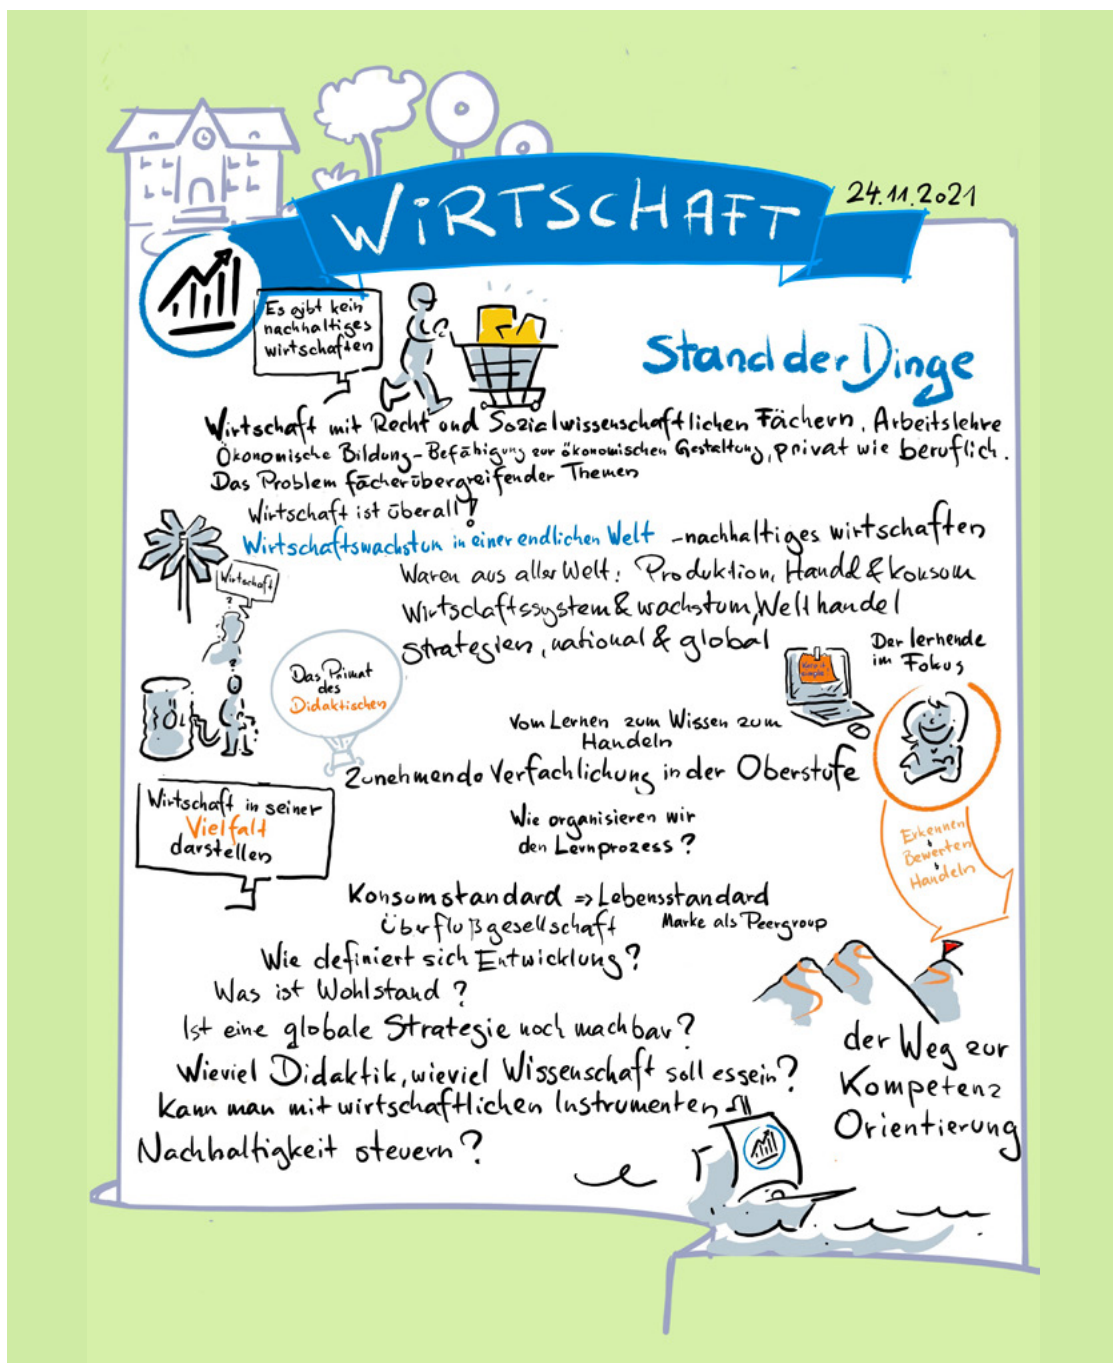 WiRTSCHAFT
24.11.2021
Es gibt kein
nachhaltiges
wirtschaften
Stand der Dinge
Wirtschaft mit Recht und Sozialwissenschaftlichen Fächern, Arbeitslehre
Ökonomische Bildung - Befähigung zur ökonomischen Gestaltung, privat wie beruflich.
Das Problem fächerübergreifender Themen
Wirtschaft ist überall!
Wirtschaftswachstum in einer endlichen Welt - nachhaltiges wirtschaften
Waren aus aller Welt: Produktion, Handel & Konsum
Wirtschaftssystem & wachstum, Welthandel
strategien, national & global
Wirtschaft
?
?
Das Primat
des
Didaktischen
Keep it
simple!
Der lernende
im Fokus
Vom Lernen zum Wissen zum
Handeln
Zunehmende Verfachlichung in der Oberstufe
Wirtschaft in seiner
Vielfalt
darstellen
Wie organisieren wir
den Lernprozess?
Erkennen
Bewerten
Handeln
Konsumstandard => Lebensstandard
Überflußgesellschaft Marke als Peergroup
Wie definiert sich Entwicklung?
Was ist Wohlstand?
Ist eine globale Strategie noch machbar?
Wieviel Didaktik, wieviel Wissenschaft soll es sein?
Kann man mit wirtschaftlichen Instrumenten
Nachhaltigkeit steuern?
der Weg zur
Kompetenz
Orientierung